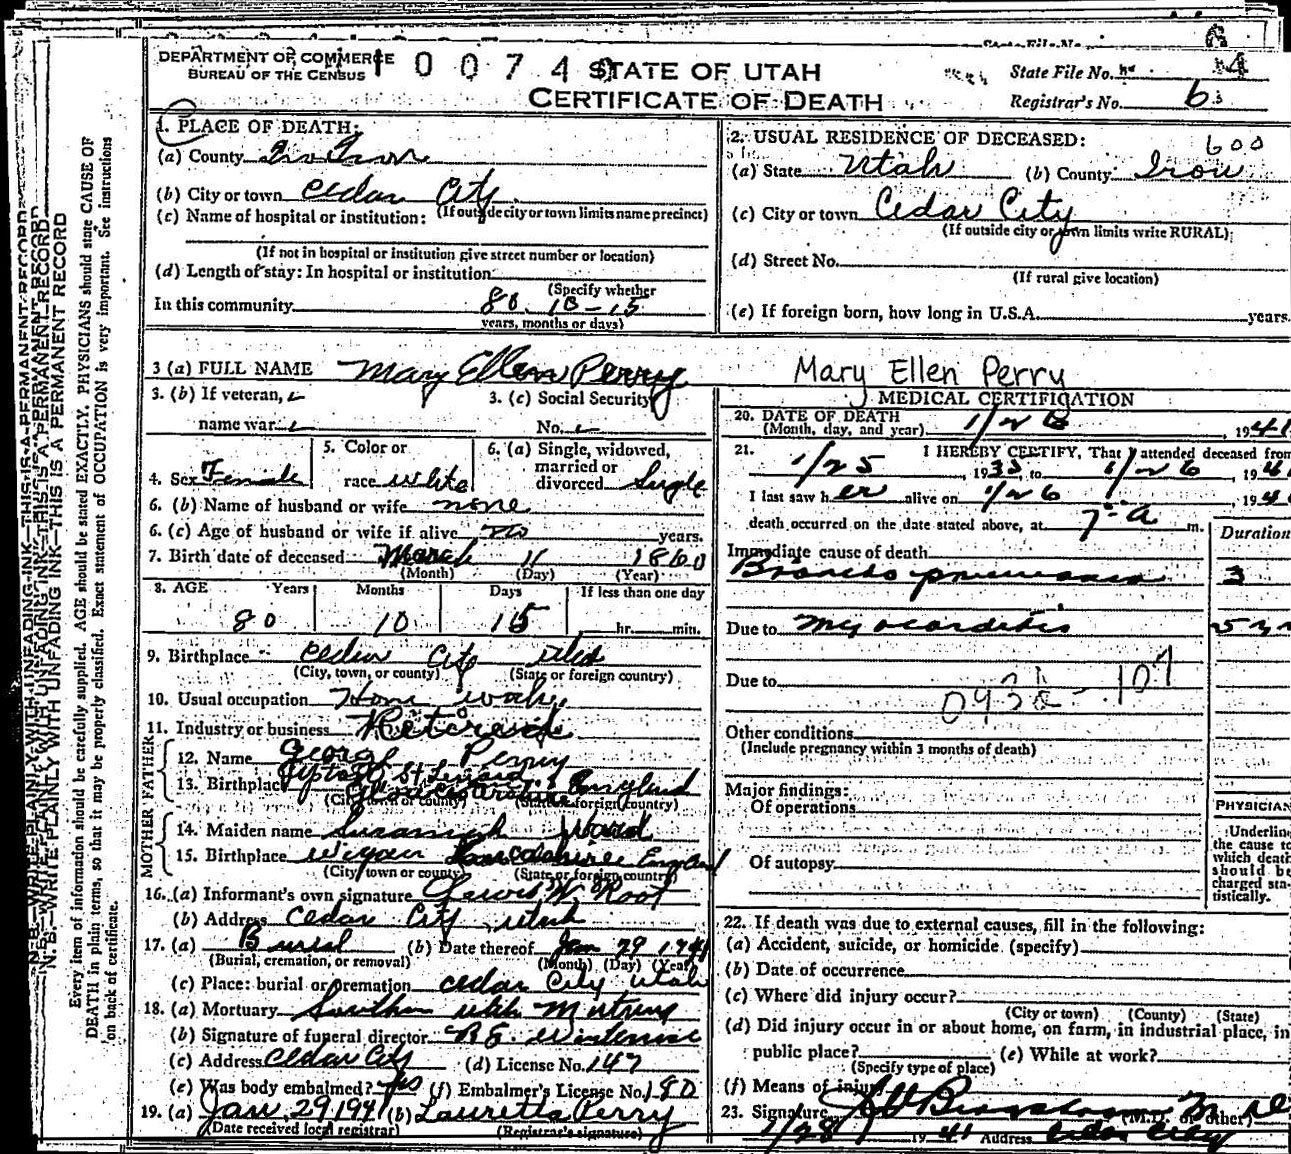 State File No.
6
DEPARTMENT OF COMMERCE
BUREAU OF THE CENSUS
1 0 0 7 4
STATE OF UTAH
CERTIFICATE OF DEATH
State File No. 14
Registrar's No. 6
1. PLACE OF DEATH:
(a) County Iron
(b) City or town Cedar City
(If outside city or town limits name precinct)
(c) Name of hospital or institution:
(If not in hospital or institution give street number or location)
(d) Length of stay: In hospital or institution
(Specify whether
In this community 80-10-15
years, months or days)
2. USUAL RESIDENCE OF DECEASED:
600
(a) State Utah (b) County Iron
(c) City or town Cedar City
(If outside city or town limits write RURAL)
(d) Street No.
(If rural give location)
(e) If foreign born, how long in U.S.A. years.
3 (a) FULL NAME Mary Ellen Perry Mary Ellen Perry
3. (b) If veteran,
name war
3. (c) Social Security
No.
4. Sex Female
5. Color or
race White
6. (a) Single, widowed,
married or
divorced Single
6. (b) Name of husband or wife none
6. (c) Age of husband or wife if alive no years.
7. Birth date of deceased March 11 1860
(Month) (Day) (Year)
8. AGE Years Months Days If less than one day
80 10 15 hr. min.
9. Birthplace Cedar City Utah
(City, town, or county) (State or foreign country)
10. Usual occupation Home work
11. Industry or business
FATHER
12. Name George Perry
13. Birthplace Uptown St Leonard
Gloucestershire England
(City, town or county) (State or foreign country)
MOTHER
14. Maiden name Susannah Ward
15. Birthplace Wigan Lancashire England
(City, town or county) (State or foreign country)
16. (a) Informant's own signature Lewis W. Root
(b) Address Cedar City Utah
17. (a) Burial (b) Date thereof Jan 29 1941
(Burial, cremation, or removal) (Month) (Day) (Year)
(c) Place: burial or cremation Cedar City Utah
18. (a) Mortuary Southern Utah Mortuary
(b) Signature of funeral director
(c) Address Cedar City (d) License No. 147
(e) Was body embalmed? yes (f) Embalmer's License No. 180
19. (a) Jan. 29 1941 (b) Lauretta Perry
(Date received local registrar) (Registrar's signature)
MEDICAL CERTIFICATION
20. DATE OF DEATH
(Month, day, and year) 1/26, 1941
21. I HEREBY CERTIFY, That I attended deceased from
1/25, 19 to 1/26, 194
I last saw her alive on 1/26, 194
death occurred on the date stated above, at 7 a m.
Duration
Immediate cause of death
Broncho pneumonia 3
Due to Myocarditis 5 yr
Due to
107
Other conditions
(Include pregnancy within 3 months of death)
Major findings:
Of operations
Of autopsy
PHYSICIAN
Underline
the cause to
which death
should be
charged sta-
tistically.
22. If death was due to external causes, fill in the following:
(a) Accident, suicide, or homicide (specify)
(b) Date of occurrence
(c) Where did injury occur?
(City or town) (County) (State)
(d) Did injury occur in or about home, on farm, in industrial place, in
public place? (e) While at work?
(Specify type of place)
(f) Means of injury
23. Signature (M.D. or other)
1/28 1941 Address Cedar City
N.B.—WRITE PLAINLY WITH UNFADING INK—THIS IS A PERMANENT RECORD
Every item of information should be carefully supplied. AGE should be stated EXACTLY. PHYSICIANS should state CAUSE OF
DEATH in plain terms, so that it may be properly classified. Exact statement of OCCUPATION is very important. See instructions
on back of certificate.